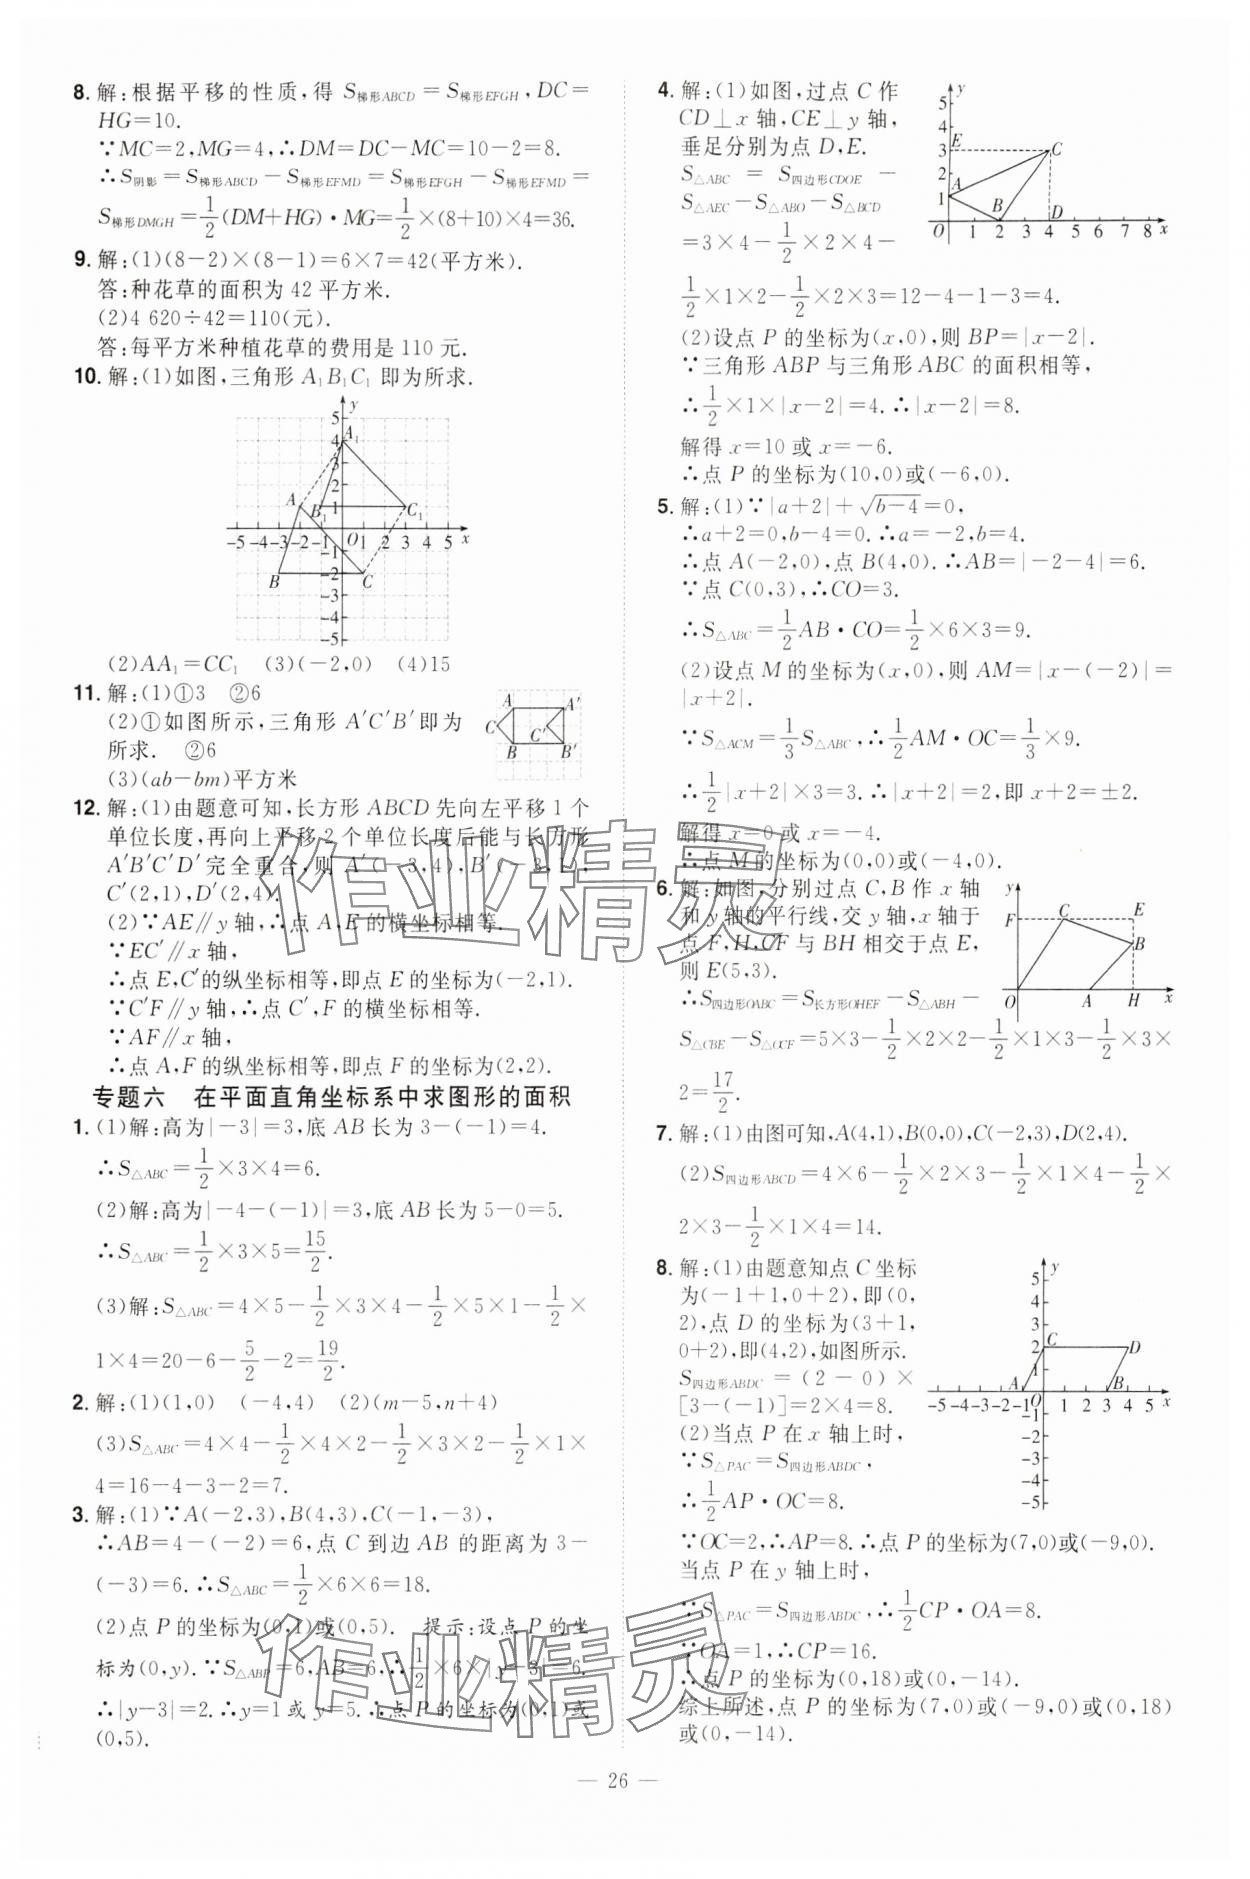 8. 解:根据平移的性质,得 S梯形ABCD=S梯形EFGH,DC=
HG=10.
∵MC=2,MG=4,∴DM=DC−MC=10−2=8.
∴S阴影=S梯形ABCD−S梯形EFMD=S梯形EFGH−S梯形EFMD=
S梯形DMGH=1/2(DM+HG)·MG=1/2×(8+10)×4=36.
9. 解:(1)(8−2)×(8−1)=6×7=42(平方米).
答:种花草的面积为 42 平方米.
(2)4 620÷42=110(元).
答:每平方米种植花草的费用是 110 元.
10. 解:(1)如图,三角形 A₁B₁C₁ 即为所求.
(2)AA₁=CC₁ (3)(−2,0) (4)15
11. 解:(1)①3 ②6
(2)①如图所示,三角形 A′C′B′即为
所求. ②6
(3)(ab−bm)平方米
12. 解:(1)由题意可知,长方形 ABCD 先向左平移 1 个
单位长度,再向上平移 2 个单位长度后能与长方形
A′B′C′D′完全重合,则 A′(−3,4),B′(−3,1),
C′(2,1),D′(2,4).
(2)∵AE∥y 轴,∴点 A,E 的横坐标相等.
∵EC′∥x 轴,
∴点 E,C′的纵坐标相等,即点 E 的坐标为(−2,1).
∵C′F∥y 轴,∴点 C′,F 的横坐标相等.
∵AF∥x 轴,
∴点 A,F的纵坐标相等,即点 F 的坐标为(2,2).
专题六 在平面直角坐标系中求图形的面积
1. (1)解:高为|−3|=3,底 AB 长为 3−(−1)=4.
∴S△ABC=1/2×3×4=6.
(2)解:高为|−4−(−1)|=3,底 AB 长为 5−0=5.
∴S△ABC=1/2×3×5=15/2.
(3)解:S△ABC=4×5−1/2×3×4−1/2×5×1−1/2×
1×4=20−6−5/2−2=19/2.
2. 解:(1)(1,0) (−4,4) (2)(m−5,n+4)
(3)S△ABC=4×4−1/2×4×2−1/2×3×2−1/2×1×
4=16−4−3−2=7.
3. 解:(1)∵A(−2,3),B(4,3),C(−1,−3),
∴AB=4−(−2)=6,点 C 到边 AB 的距离为 3−
(−3)=6. ∴S△ABC=1/2×6×6=18.
(2)点 P 的坐标为(0,1)或(0,5). 提示:设点 P 的坐
标为(0,y). ∵S△ABP=6,AB=6,∴1/2×6×|y−3|=6.
∴|y−3|=2. ∴y=1 或 y=5. ∴点 P 的坐标为(0,1)或
(0,5).
4. 解:(1)如图,过点 C 作
CD⊥x 轴,CE⊥y 轴,
垂足分别为点 D,E.
S△ABC=S四边形CDOE−
S△AEC−S△ABO−S△BCD
=3×4−1/2×2×4−
1/2×1×2−1/2×2×3=12−4−1−3=4.
(2)设点 P 的坐标为(x,0),则 BP=|x−2|.
∵三角形 ABP 与三角形 ABC 的面积相等,
∴1/2×1×|x−2|=4. ∴|x−2|=8.
解得 x=10 或 x=−6.
∴点 P 的坐标为(10,0)或(−6,0).
5. 解:(1)∵|a+2|+√(b−4)=0,
∴a+2=0,b−4=0. ∴a=−2,b=4.
∴点 A(−2,0),点 B(4,0). ∴AB=|−2−4|=6.
∵点 C(0,3),∴CO=3.
∴S△ABC=1/2AB·CO=1/2×6×3=9.
(2)设点 M 的坐标为(x,0),则 AM=|x−(−2)|=
|x+2|.
∵S△ACM=1/3S△ABC,∴1/2AM·OC=1/3×9.
∴1/2|x+2|×3=3. ∴|x+2|=2,即 x+2=±2.
解得 x=0 或 x=−4.
∴点 M 的坐标为(0,0)或(−4,0).
6. 解:如图,分别过点 C,B 作 x 轴
和 y 轴的平行线,交 y 轴,x 轴于
点 F,H,CF 与 BH 相交于点 E,
则 E(5,3).
∴S四边形OABC=S长方形OHEF−S△ABH−
S△CBE−S△OCF=5×3−1/2×2×2−1/2×3×1−1/2×3×
2=17/2.
7. 解:(1)由图可知,A(4,1),B(0,0),C(−2,3),D(2,4).
(2)S四边形ABCD=4×6−1/2×2×1−1/2×1×4−1/2×
2×3−1/2×1×4=14.
8. 解:(1)由题意知点 C 坐标
为(−1+1,0+2),即(0,
2),点 D 的坐标为(3+1,
0+2),即(4,2),如图所示.
S四边形ABDC=(2−0)×
[3−(−1)]=2×4=8.
(2)当点 P 在 x 轴上时,
∵S△PAC=S四边形ABDC,
∴1/2AP·OC=8.
∵OC=2,∴AP=8. ∴点 P 的坐标为(7,0)或(−9,0).
当点 P 在 y 轴上时,
∵S△PAC=S四边形ABDC,∴1/2CP·OA=8.
∵OA=1,∴CP=16.
∴点 P 的坐标为(0,18)或(0,−14).
综上所述,点 P 的坐标为(7,0)或(−9,0)或(0,18)
或(0,−14).
— 26 —
作业精灵
作业精灵